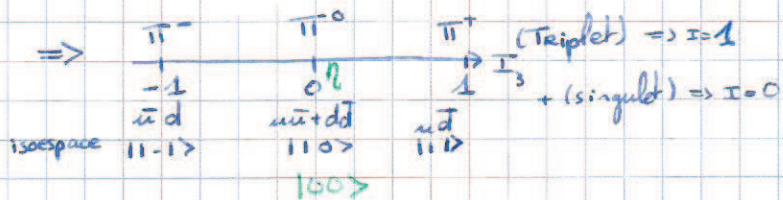 π⁻ π⁰ π⁺ (Triplet) => I=1
=> I₃
-1 0 η 1 + (singulet) => I=0
ū d uū+dd̄ u d̄
isoespace |1-1> |1 0> |1 1>
|00>